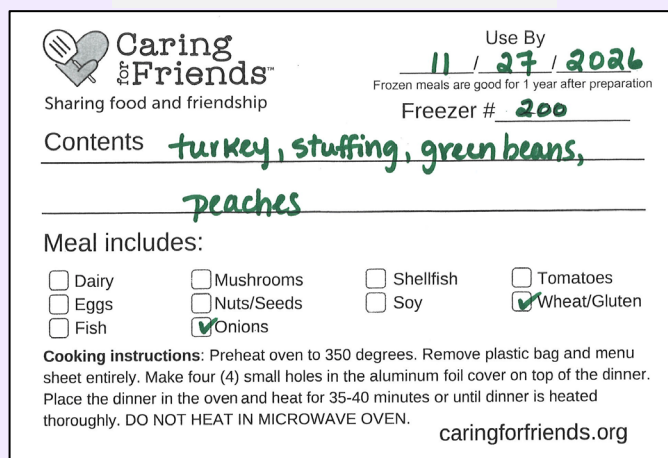 Caring
for Friends™
Sharing food and friendship
Use By
11 / 27 / 2026
Frozen meals are good for 1 year after preparation
Freezer # 200
Contents turkey, stuffing, green beans,
peaches
Meal includes:
Dairy Mushrooms Shellfish Tomatoes
Eggs Nuts/Seeds Soy Wheat/Gluten
Fish Onions
Cooking instructions: Preheat oven to 350 degrees. Remove plastic bag and menu
sheet entirely. Make four (4) small holes in the aluminum foil cover on top of the dinner.
Place the dinner in the oven and heat for 35-40 minutes or until dinner is heated
thoroughly. DO NOT HEAT IN MICROWAVE OVEN.
caringforfriends.org